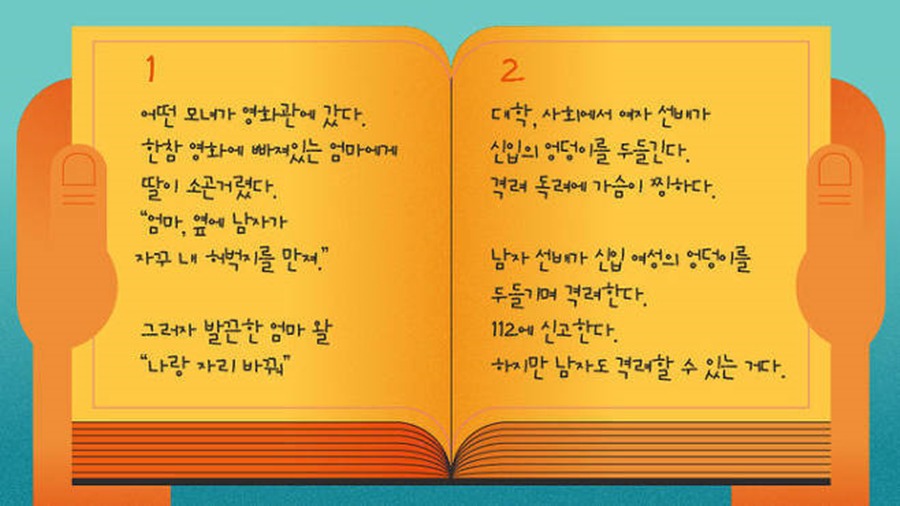 1
어떤 모녀가 영화관에 갔다.
한참 영화에 빠져있는 엄마에게
딸이 소곤거렸다.
“엄마, 옆에 남자가
자꾸 내 허벅지를 만져.”
그러자 발끈한 엄마 왈
“나랑 자리 바꿔”
2
대학, 사회에서 여자 선배가
신입의 엉덩이를 두들긴다.
격려 독려에 가슴이 찡하다.
남자 선배가 신입 여성의 엉덩이를
두들기며 격려한다.
112에 신고한다.
하지만 남자도 격려할 수 있는 거다.